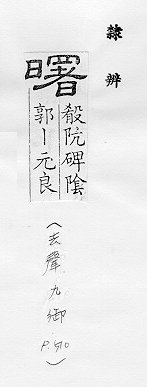 隸辨
曙
殽阬碑陰
郭丨元良
(去聲九御 P.510)